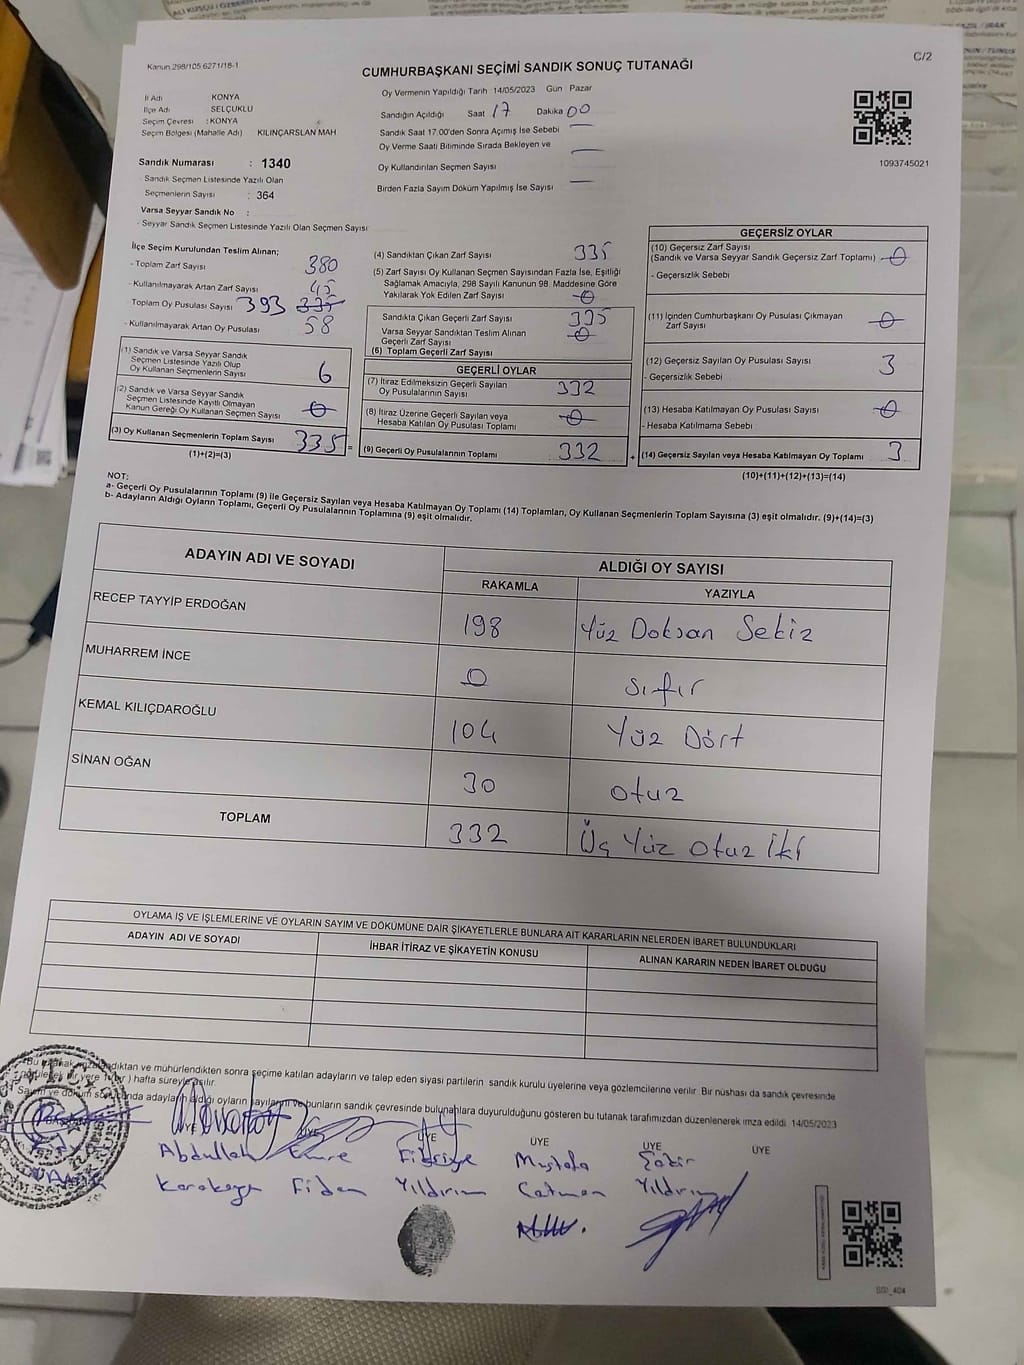 Kanun 298/105,6271/18-1
C/2
CUMHURBAŞKANI SEÇİMİ SANDIK SONUÇ TUTANAĞI
İl Adı KONYA
İlçe Adı SELÇUKLU
Seçim Çevresi : KONYA
Seçim Bölgesi (Mahalle Adı) KILINÇARSLAN MAH
Sandık Numarası : 1340
- Sandık Seçmen Listesinde Yazılı Olan
Seçmenlerin Sayısı : 364
Varsa Seyyar Sandık No :
- Seyyar Sandık Seçmen Listesinde Yazılı Olan Seçmen Sayısı
Oy Vermenin Yapıldığı Tarih 14/05/2023 Gün Pazar
Sandığın Açıldığı Saat 17 Dakika 00
Sandık Saat 17.00'den Sonra Açımış İse Sebebi —
Oy Verme Saati Bitiminde Sırada Bekleyen ve
Oy Kullandırılan Seçmen Sayısı —
Birden Fazla Sayım Döküm Yapılmış İse Sayısı —
1093745021
İlçe Seçim Kurulundan Teslim Alınan;
- Toplam Zarf Sayısı 380
- Kullanılmayarak Artan Zarf Sayısı 45
Toplam Oy Pusulası Sayısı 393 335
- Kullanılmayarak Artan Oy Pusulası 58
(1) Sandık ve Varsa Seyyar Sandık
Seçmen Listesinde Yazılı Olup
Oy Kullanan Seçmenlerin Sayısı 6
(2) Sandık ve Varsa Seyyar Sandık
Seçmen Listesinde Kayıtlı Olmayan
Kanun Gereği Oy Kullanan Seçmen Sayısı 0
(3) Oy Kullanan Seçmenlerin Toplam Sayısı 335 =
(1)+(2)=(3)
(4) Sandıktan Çıkan Zarf Sayısı 335
(5) Zarf Sayısı Oy Kullanan Seçmen Sayısından Fazla İse, Eşitliği
Sağlamak Amacıyla, 298 Sayılı Kanunun 98. Maddesine Göre
Yakılarak Yok Edilen Zarf Sayısı 0
Sandıkta Çıkan Geçerli Zarf Sayısı 335
Varsa Seyyar Sandıktan Teslim Alınan
Geçerli Zarf Sayısı 0
(6) Toplam Geçerli Zarf Sayısı
GEÇERLİ OYLAR
(7) İtiraz Edilmeksizin Geçerli Sayılan
Oy Pusulalarının Sayısı 332
(8) İtiraz Üzerine Geçerli Sayılan veya
Hesaba Katılan Oy Pusulası Toplamı 0
(9) Geçerli Oy Pusulalarının Toplamı 332 +
GEÇERSİZ OYLAR
(10) Geçersiz Zarf Sayısı
(Sandık ve Varsa Seyyar Sandık Geçersiz Zarf Toplamı) 0
- Geçersizlik Sebebi
(11) İçinden Cumhurbaşkanı Oy Pusulası Çıkmayan
Zarf Sayısı 0
(12) Geçersiz Sayılan Oy Pusulası Sayısı 3
- Geçersizlik Sebebi
(13) Hesaba Katılmayan Oy Pusulası Sayısı 0
- Hesaba Katılmama Sebebi
(14) Geçersiz Sayılan veya Hesaba Katılmayan Oy Toplamı 3
(10)+(11)+(12)+(13)=(14)
NOT:
a- Geçerli Oy Pusulalarının Toplamı (9) ile Geçersiz Sayılan veya Hesaba Katılmayan Oy Toplamı (14) Toplamları, Oy Kullanan Seçmenlerin Toplam Sayısına (3) eşit olmalıdır. (9)+(14)=(3)
b- Adayların Aldığı Oyların Toplamı, Geçerli Oy Pusulalarının Toplamına (9) eşit olmalıdır.
ADAYIN ADI VE SOYADI ALDIĞI OY SAYISI
RAKAMLA YAZIYLA
RECEP TAYYİP ERDOĞAN 198 Yüz Doksan Sekiz
MUHARREM İNCE 0 Sıfır
KEMAL KILIÇDAROĞLU 104 Yüz Dört
SİNAN OĞAN 30 otuz
TOPLAM 332 Üç Yüz otuz İki
OYLAMA İŞ VE İŞLEMLERİNE VE OYLARIN SAYIM VE DÖKÜMÜNE DAİR ŞİKAYETLERLE BUNLARA AİT KARARLARIN NELERDEN İBARET BULUNDUKLARI
ADAYIN ADI VE SOYADI İHBAR İTİRAZ VE ŞİKAYETİN KONUSU ALINAN KARARIN NEDEN İBARET OLDUĞU
dıktan ve mühürlendikten sonra seçime katılan adayların ve talep eden siyasi partilerin sandık kurulu üyelerine veya gözlemcilerine verilir. Bir nüshası da sandık çevresinde
hafta süreyle asılır.
adayların aldığı oyların sayıların ve bunların sandık çevresinde bulunanlara duyurulduğunu gösteren bu tutanak tarafımızdan düzenlenerek imza edildi. 14/05/2023
ÜYE ÜYE ÜYE ÜYE ÜYE
Abdullah Emre Fikriye Mustafa Şakir
Karakaya Fidan Yıldrım Çatman Yıldrım